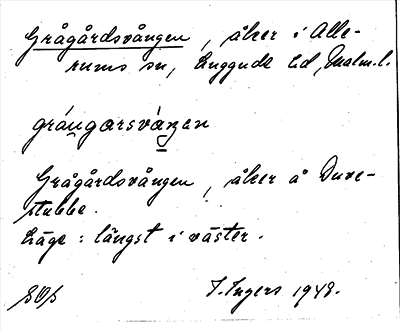 Grågårdsvången, åker i Alle-
rums sn, Luggude hd, Malm. l.
gråugarsvåŋen
Grågårdsvången, åker å Duve-
stubbe.
Läge: längst i väster.
I. Ingers 1948.